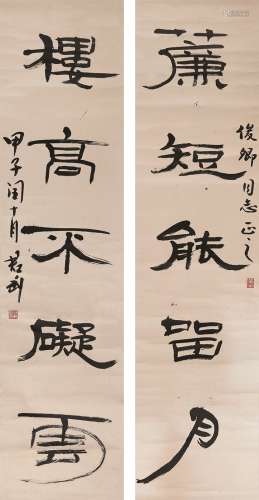 薕短能留月
俊卿同志正之
樓高不礙雲
甲子闰十月